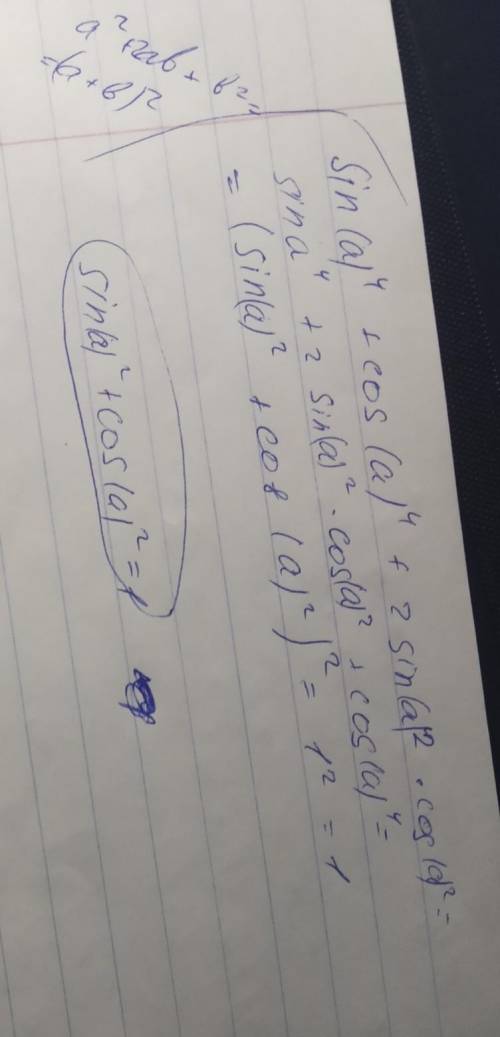 a²+2ab + b² =
=(a+b)²
sin(a)⁴ + cos(a)⁴ + 2 sin(a)² · cos(a)² =
sina⁴ + 2 sin(a)² · cos(a)² + cos(a)⁴ =
= (sin(a)² + cos(a)²)² = 1² = 1
sin(a)² + cos(a)² = 1